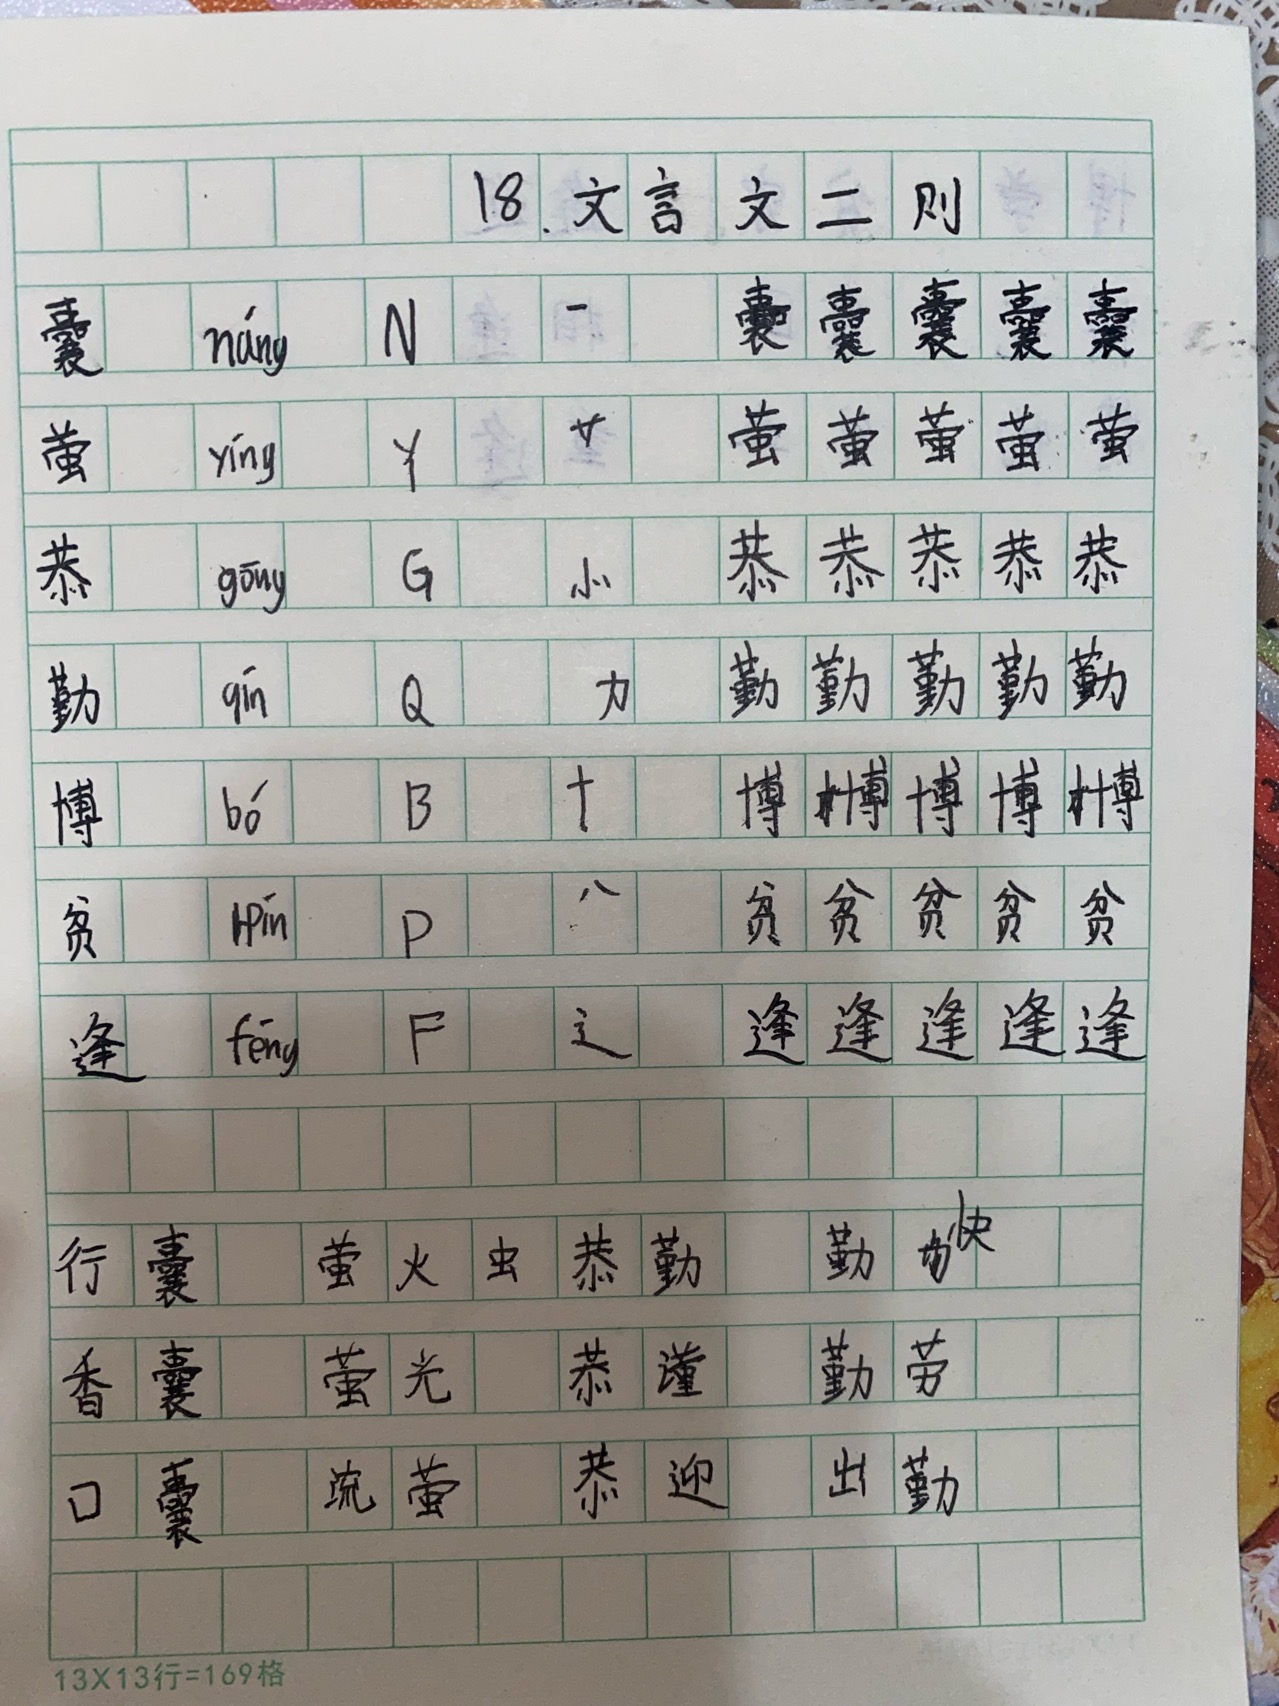 18.文言文二则
囊 náng N 一 囊囊囊囊囊
萤 yíng Y 艹 萤萤萤萤萤
恭 gōng G 㣺 恭恭恭恭恭
勤 qín Q 力 勤勤勤勤勤
博 bó B 十 博博博博博
贫 pín P 八 贫贫贫贫贫
逢 féng F 辶 逢逢逢逢逢
行囊 萤火虫 恭勤 勤快
香囊 萤光 恭谨 勤劳
口囊 流萤 恭迎 出勤
13X13行=169格